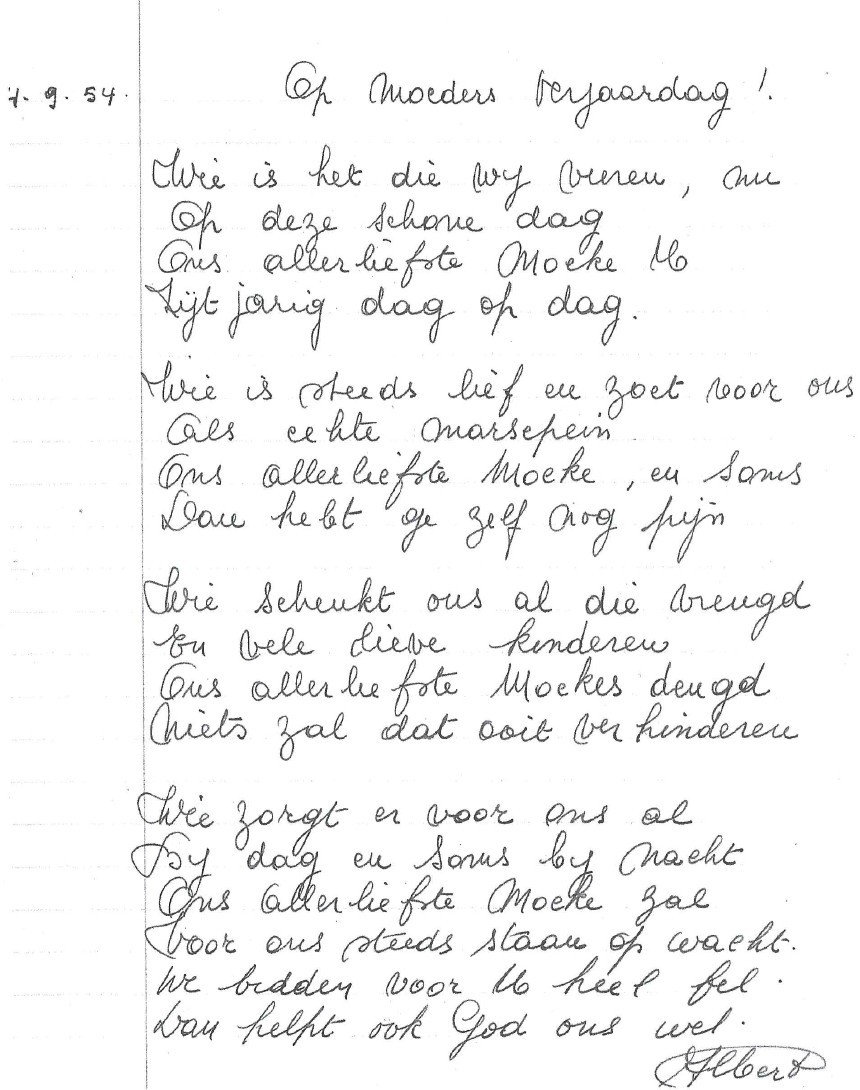 7. 9. 54.
Op Moeders Verjaardag!
Wie is het die wy vieren, nu
Op deze schone dag
Ons allerliefste Moeke U
Zijt jarig dag op dag.
Wie is steeds lief en zoet voor ons
Als echte marsepein
Ons allerliefste Moeke, en soms
Dan hebt ge zelf nog pijn
Wie schenkt ons al die vreugd
En vele lieve kinderen
Ons allerliefste Moekes deugd
Niets zal dat ooit verhinderen
Wie zorgt er voor ons al
By dag en soms by nacht
Ons allerliefste Moeke zal
Voor ons steeds staan op wacht.
We bidden voor U heel fel.
Dan helpt ook God ons wel.
Albert